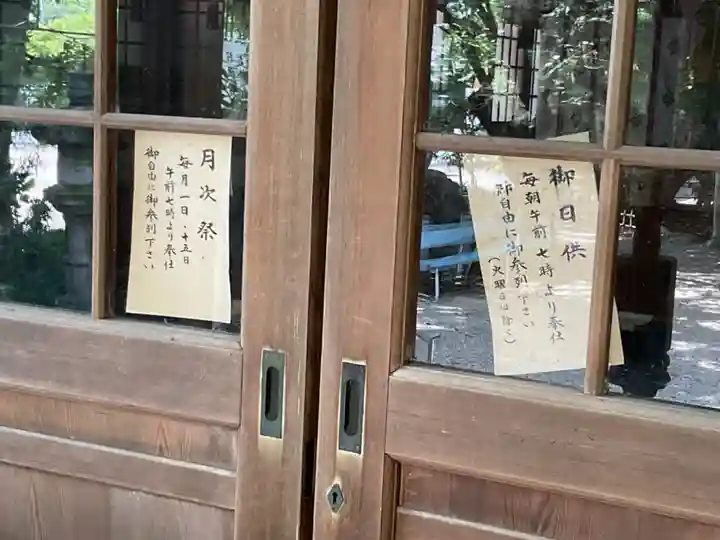 御日供
毎朝午前七時より奉仕
御自由に御参列下さい
(火曜日は除く)
月次祭
毎月一日・十五日
午前七時より奉仕
御自由に御参列下さい